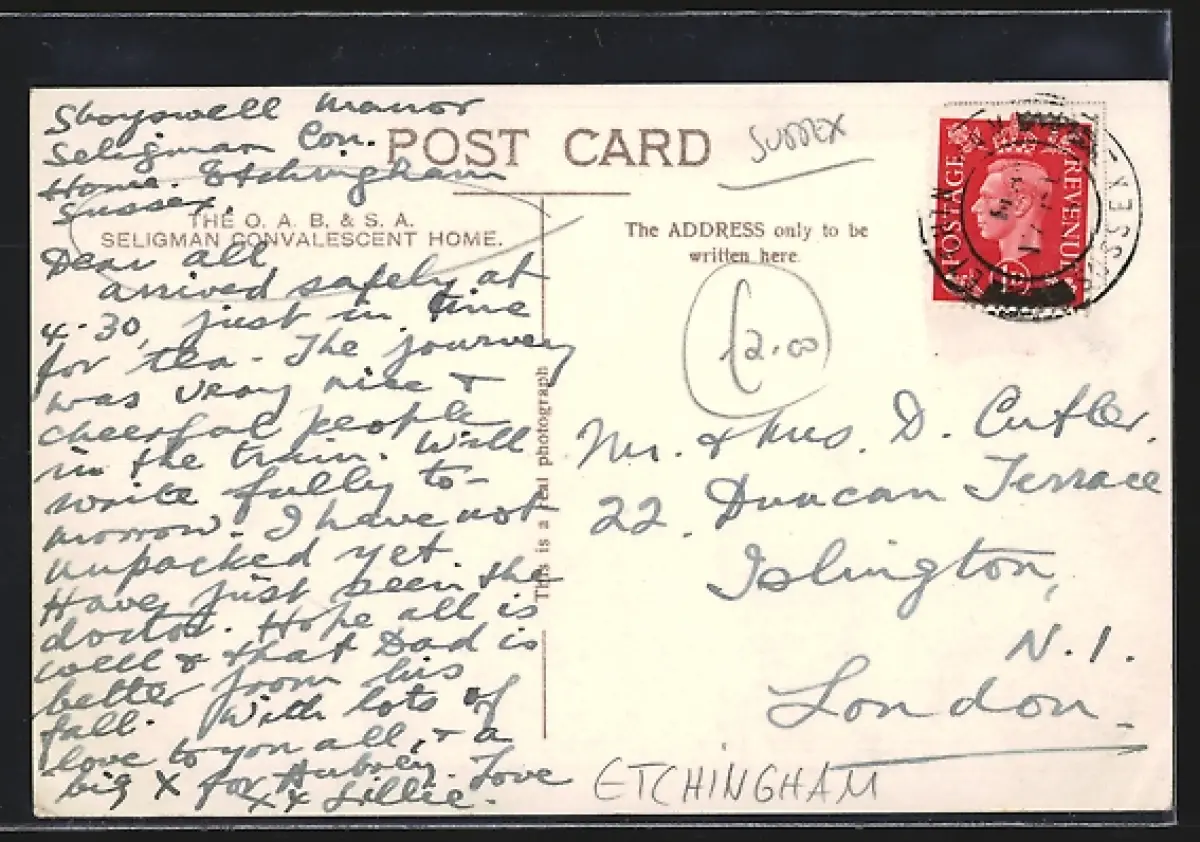 Shoyswell Manor
Seligman Con.
Home. Etchingham
Sussex.
POST CARD
SUSSEX
THE O. A. B. & S. A.
SELIGMAN CONVALESCENT HOME.
The ADDRESS only to be
written here.
POSTAGE
REVENUE
SUSSEX
£2.00
Dear all
arrived safely at
4-30, just in time
for tea - The journey
was very nice &
cheerful people
in the train. Will
write fully to-
morrow. I have not
unpacked yet.
Have just seen the
doctor. Hope all is
well & that Dad is
better from his
fall. With lots of
love to you all, & a
big X for Aubrey. Love
XX Lillie.
This is a real photograph
Mr. & Mrs. D. Cutler.
22. Duncan Terrace
Islington,
N.1.
London.
ETCHINGHAM